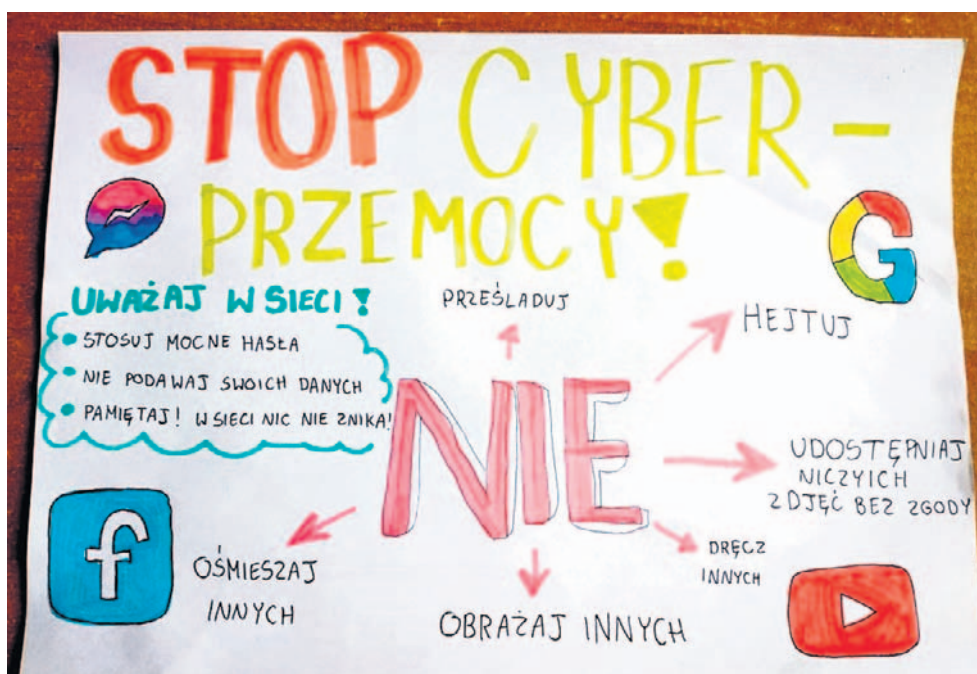 STOP CYBER-
PRZEMOCY!
UWAŻAJ W SIECI!
STOSUJ MOCNE HASŁA
NIE PODAWAJ SWOICH DANYCH
PAMIĘTAJ! W SIECI NIC NIE ZNIKA!
PRZEŚLADUJ
HEJTUJ
NIE
UDOSTĘPNIAJ
NICZYICH
ZDJĘĆ BEZ ZGODY
DRĘCZ
INNYCH
OBRAŻAJ INNYCH
OŚMIESZAJ
INNYCH
G
f